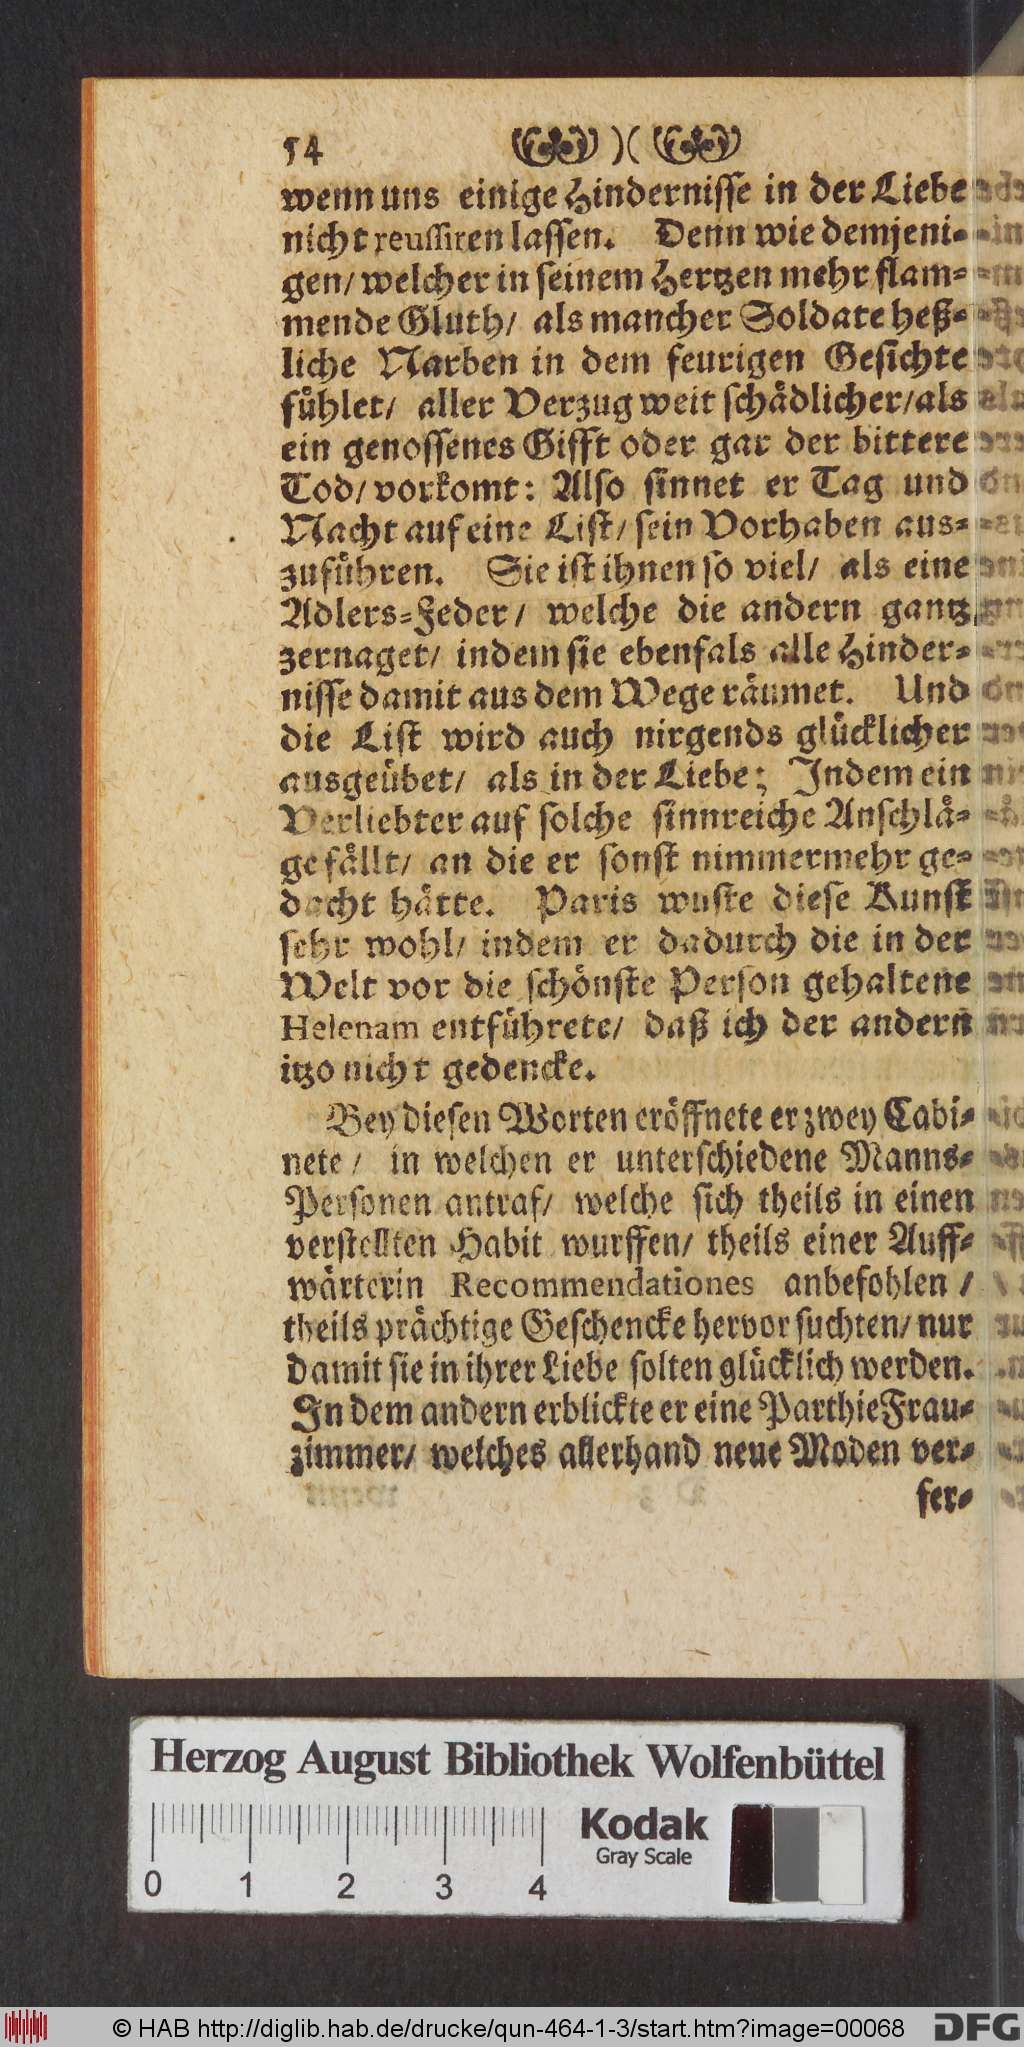 54 )(
wenn uns einige Hindernisse in der Liebe
nicht reussiren lassen. Denn wie demjeni-
gen/ welcher in seinem Hertzen mehr flam-
mende Gluth/ als mancher Soldate heß-
liche Narben in dem feurigen Gesichte
fühlet/ aller Verzug weit schädlicher/ als
ein genossenes Gifft oder gar der bittere
Tod/ vorkomt: Also sinnet er Tag und
Nacht auf eine List/ sein Vorhaben aus-
zuführen. Sie ist ihnen so viel/ als eine
Adlers-Feder/ welche die andern gantz
zernaget/ indem sie ebenfals alle Hinder-
nisse damit aus dem Wege räumet. Und
die List wird auch nirgends glücklicher
ausgeübet/ als in der Liebe; Indem ein
Verliebter auf solche sinnreiche Anschlä-
ge fällt/ an die er sonst nimmermehr ge-
dacht hätte. Paris wuste diese Kunst
sehr wohl/ indem er dadurch die in der
Welt vor die schönste Person gehaltene
Helenam entführete/ daß ich der andern
itzo nicht gedencke.
Bey diesen Worten eröffnete er zwey Cabi-
nete/ in welchen er unterschiedene Manns-
Personen antraf/ welche sich theils in einen
verstellten Habit wurffen/ theils einer Auff-
wärterin Recommendationes anbefohlen/
theils prächtige Geschencke hervor suchten/ nur
damit sie in ihrer Liebe solten glücklich werden.
In dem andern erblickte er eine Parthie Frau-
zimmer/ welches allerhand neue Moden ver-
fer-
Herzog August Bibliothek Wolfenbüttel
Kodak
Gray Scale
0 1 2 3 4
© HAB http://diglib.hab.de/drucke/qun-464-1-3/start.htm?image=00068
DFG